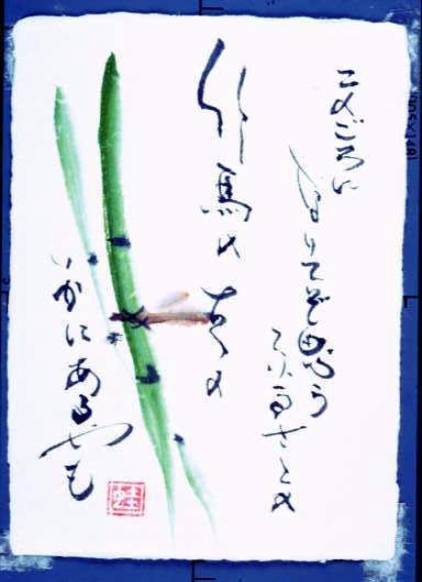 このごろに
なりてぞ思う
ふるさとの
竹馬の友の
いかにあるやも
蛙